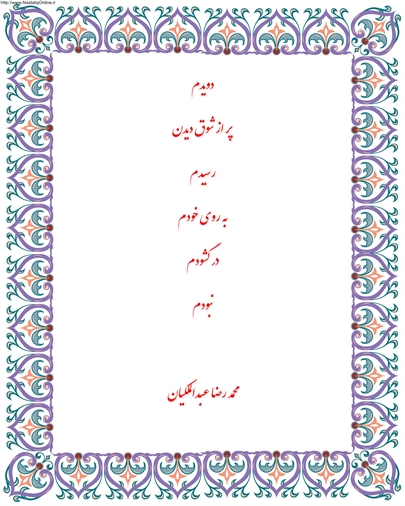 http://www.NastaliqOnline.ir
دویدم
پر از شوق دیدن
رسیدم
به روی خودم
در گشودم
نبودم
محمد رضا عبدالملکیان